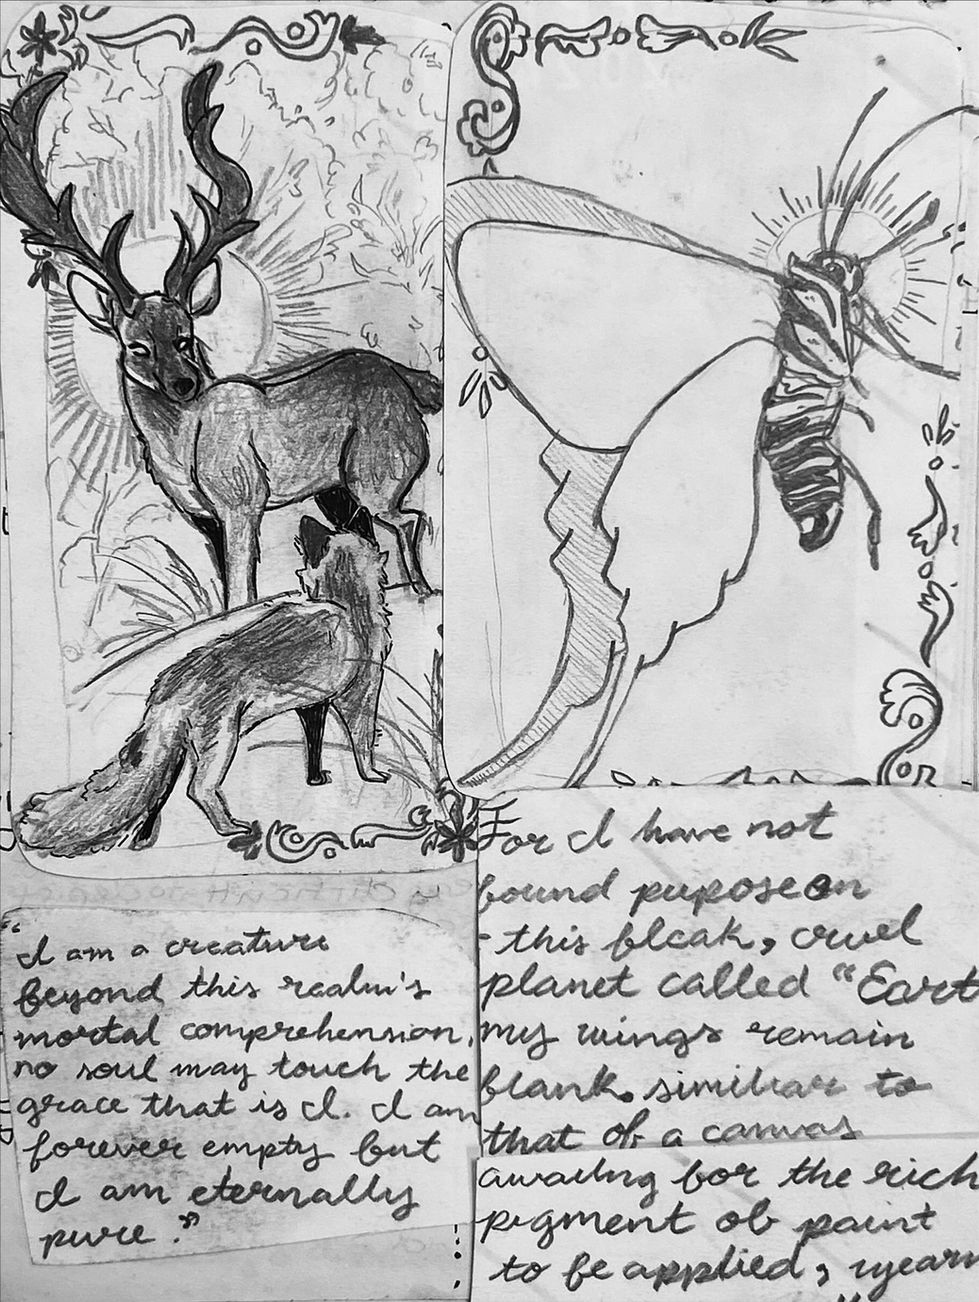 "I am a creature
beyond this realm's
mortal comprehension,
no soul may touch the
grace that is I. I am
forever empty but
I am eternally
pure."
For I have not
found pupose on
this bleak, cruel
planet called "Eart
my wings remain
blank. similiar to
that of a canvas
awaiting for the rich
pigment of paint
to be applied, I yearn